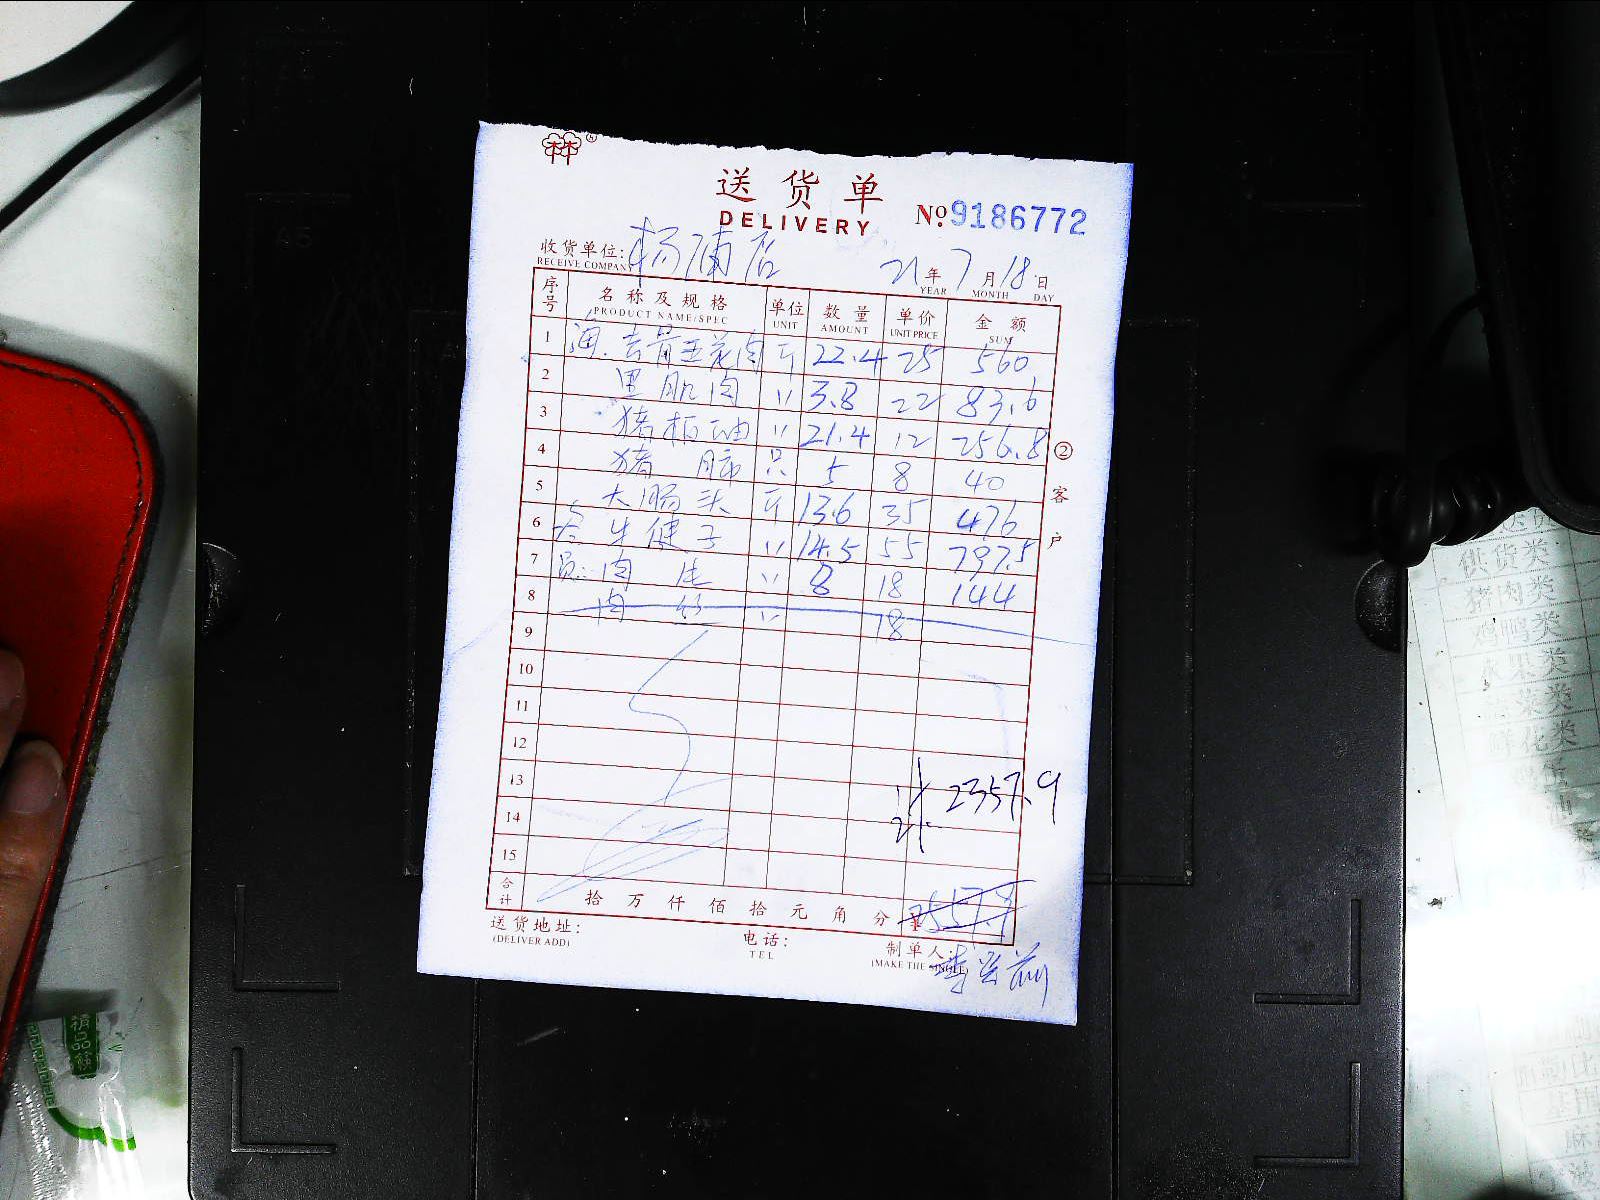 送货单
DELIVERY
No.9186772
收货单位: 杨浦店 21年7月18日
RECEIVE COMPANY YEAR MONTH DAY
序号 名称及规格 单位 数量 单价 金额
PRODUCT NAME/SPEC UNIT AMOUNT UNIT PRICE SUM
1 去骨五花肉 斤 22.4 25 560
2 里肌肉 〃 3.8 22 83.6
3 猪板油 〃 21.4 12 256.8
4 猪 只 5 8 40
5 大肠头 斤 13.6 35 476
6 牛健子 〃 14.5 55 797.5
7 肉 〃 8 18 144
8 肉丝 〃 18
9
10
11
12
13 2357.9
14
15
合计 拾 万 仟 佰 拾 元 角 分 ¥
送货地址: 电话: 制单人:
(DELIVER ADD) TEL (MAKE THE SINGLE)
②客户
供货类
猪肉类
鸡鸭类
水果类
蔬菜类
鲜花类